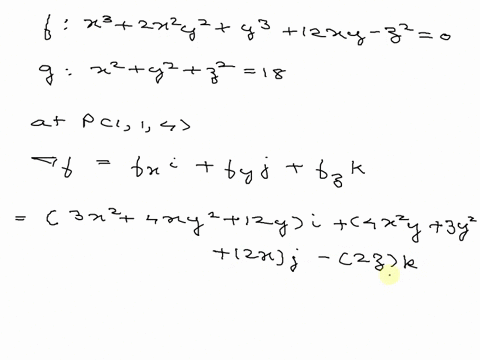 f : x³ + 2x²y² + y³ + 12xy - z² = 0
g : x² + y² + z² = 18
at P(1, 1, 4)
∇f = fx i + fy j + fz k
= (3x² + 4xy² + 12y) i + (4x²y + 3y²
+ 12x) j - (2z) k